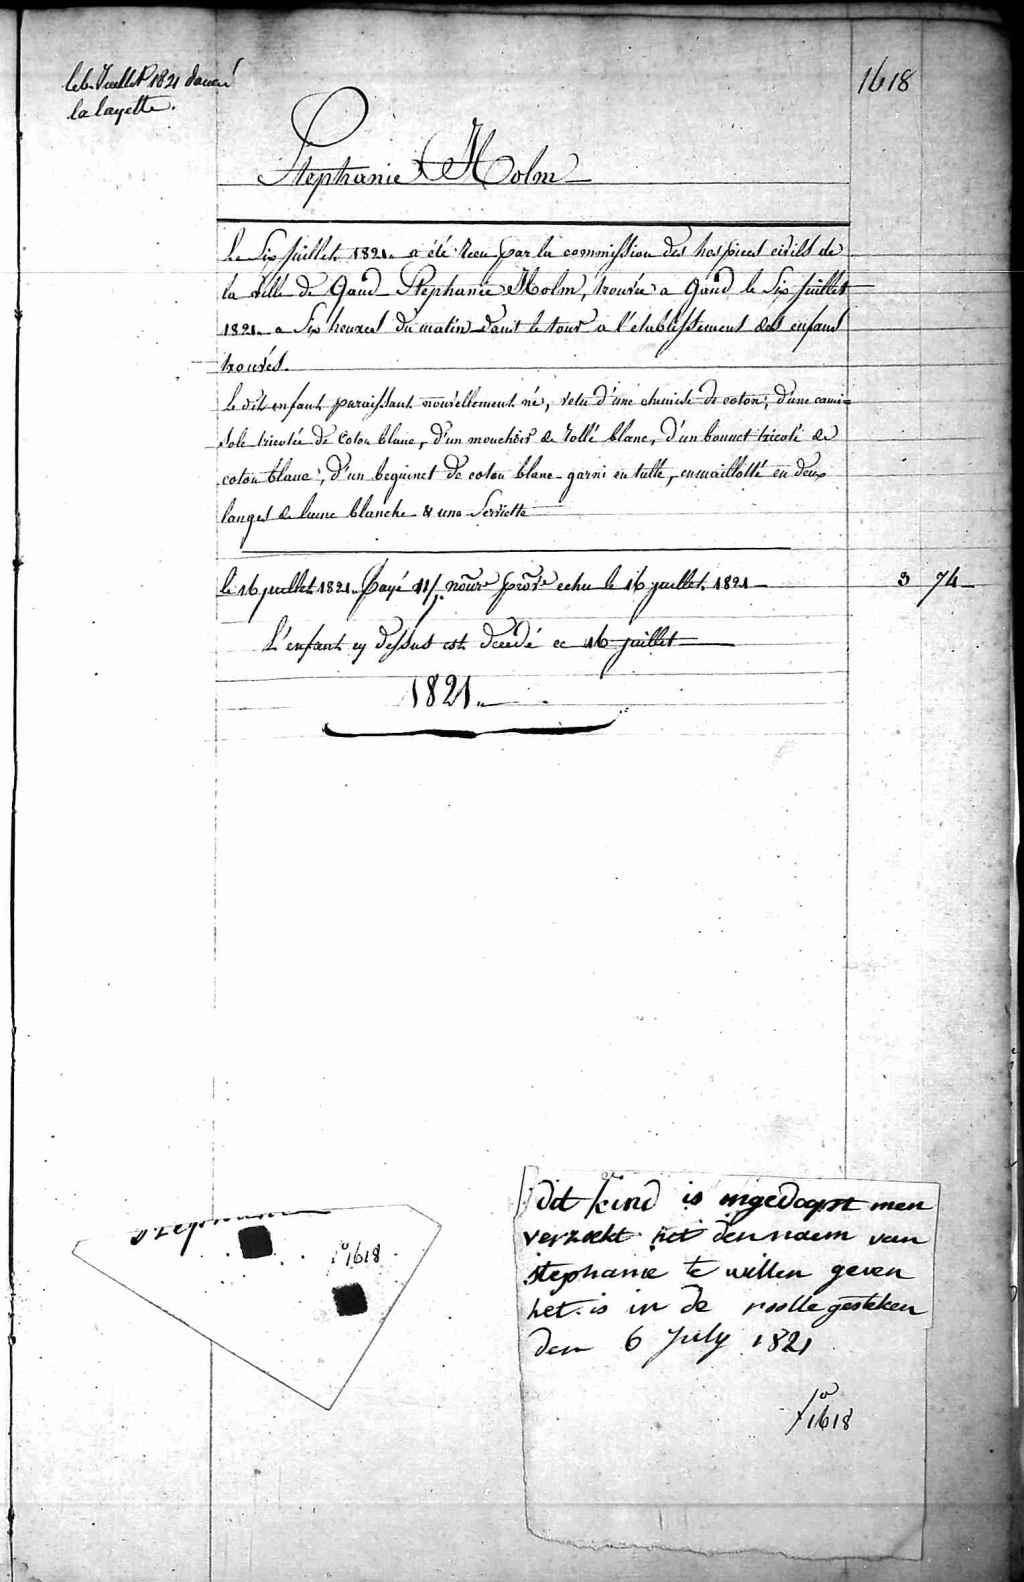 le 6 Juillet 1821 donné
la layette.
1618
Stephanie Holm
Le Six Juillet 1821 a été recu par la commission des hospices civils de
la ville de Gand Stephanie Holm, trouvée a Gand le Six Juillet
1821 a Six heures du matin dans le tour a l'etablissement des enfans
trouvés.
Le dit enfant paraissant nouvellement né, vetu d'une chemise de coton, d'une cami=
sole tricotée de Coton blanc, d'un mouchoir de Tollé blanc, d'un bonnet tricoté de
coton blanc, d'un beguinet de coton blanc garni en tulle, enmaillotté en deux
langes de laine blanche & une Serviette
le 16 juillet 1821 Payé 11/j. nourre provre echu le 16 juillet 1821 3 74
L'enfant cy dessus est decedé ce 16 juillet
1821
stephanie
fo 1618
dit kind is ongedoopt men
verzoekt het den naem van
stephanie te willen geven
het is in de rolle gesteken
den 6 July 1821
fo 1618